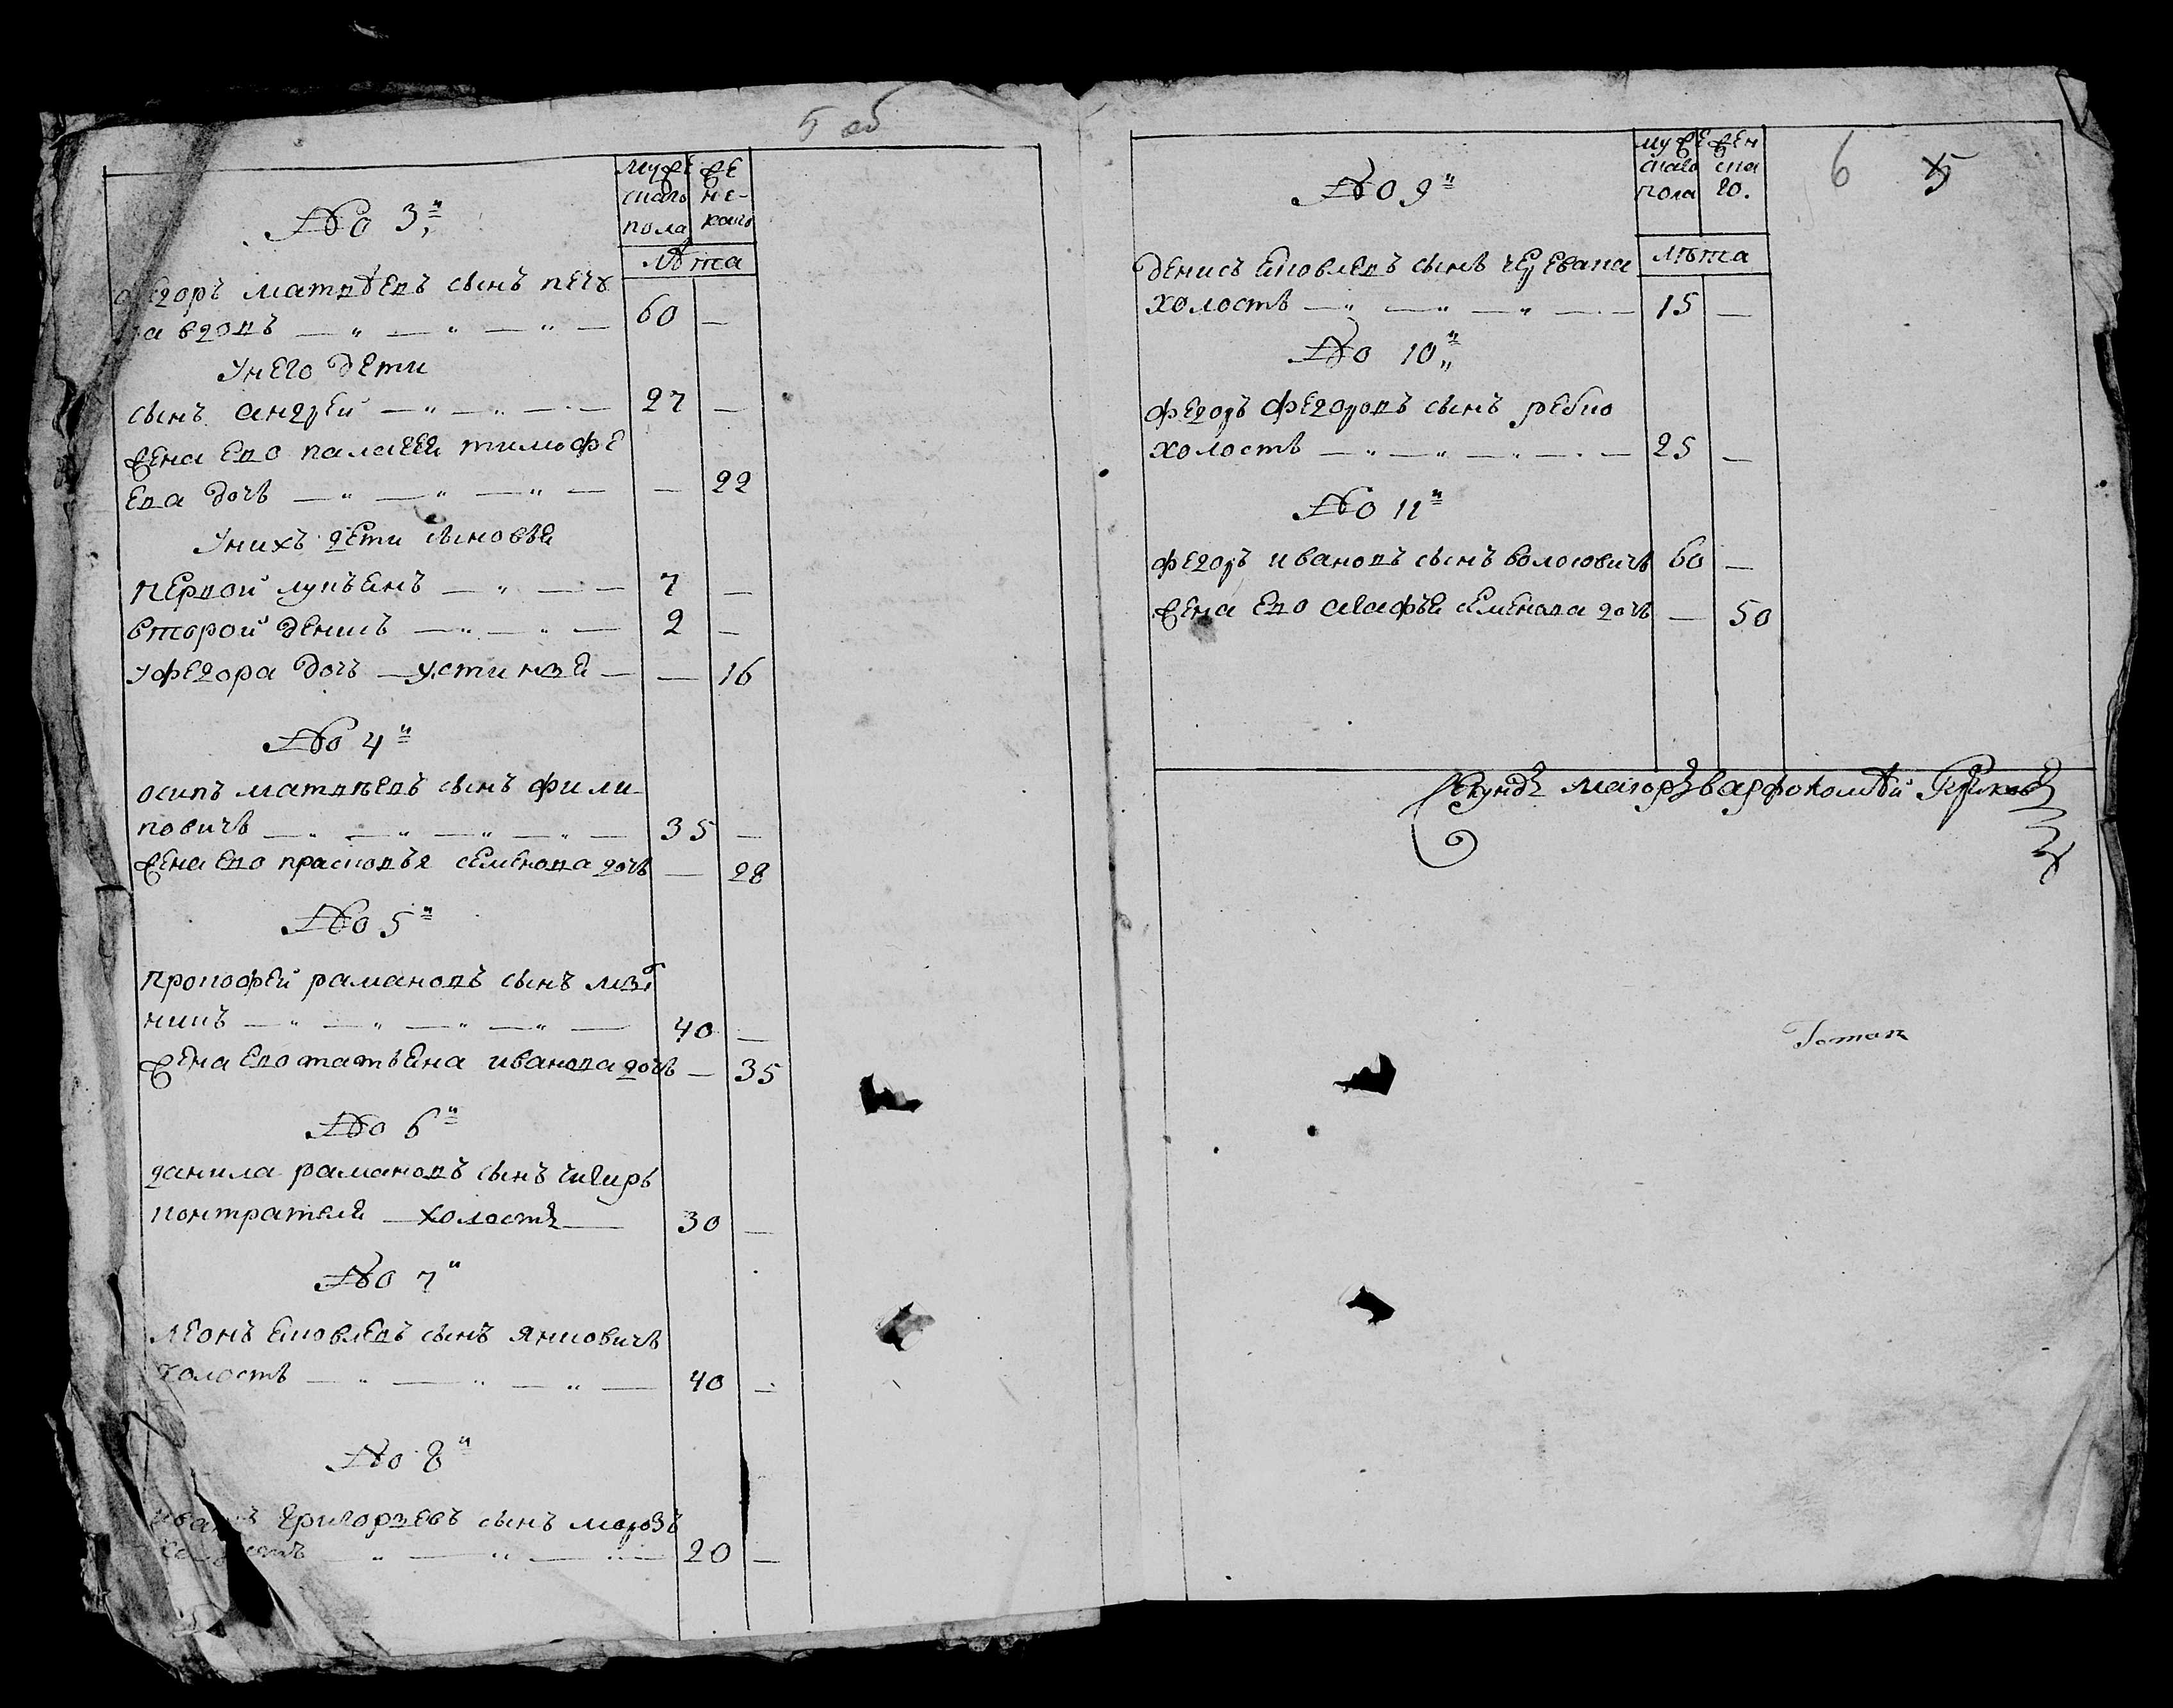 5 об
мужескаго пола
женскаго
лѣта
No 3й
Федоръ матвѣевъ сынъ печу
ра вдовъ — 60 —
У него дети
сынъ андрей — 27 —
жена ево палагея тимофе
ева дочь — — 22
У нихъ дети сыновья
первой лукъянъ — 7 —
второй денисъ — 2 —
у федора дочь — устинья — — 16
No 4й
осипъ матвѣевъ сынъ фили
повичъ — 35 —
жена ево прасковья семенова дочь — 28
No 5й
прокофей романовъ сынъ
40 —
жена ево татьяна иванова дочь — 35
No 6й
данила рамановъ сынъ чигирь
холостъ — 30 —
No 7й
леонъ яковлевъ сынъ янковичъ
холостъ — 40 —
No 8й
иванъ григорьевъ сынъ морозъ
холостъ — 20 —
6 5
мужескаго пола
женскаго
лѣта
No 9й
денисъ яковлевъ сынъ черевака
холостъ — 15 —
No 10й
федоръ федоровъ сынъ
холостъ — 25 —
No 11й
федоръ ивановъ сынъ волосовичъ 60 —
жена ево агафья семенова дочь — 50
Секундъ маіоръ варфоломѣй